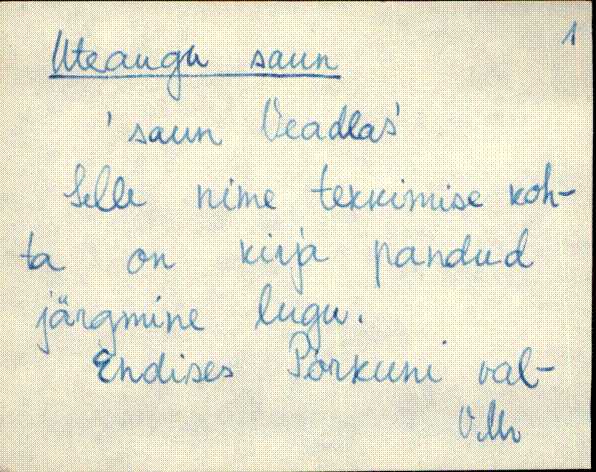 1
Uteaugu saun
'saun Veadlas'
Selle nime tekkimise koh-
ta on kirja pandud
järgmine lugu.
Endises Porkuni val-
VMr